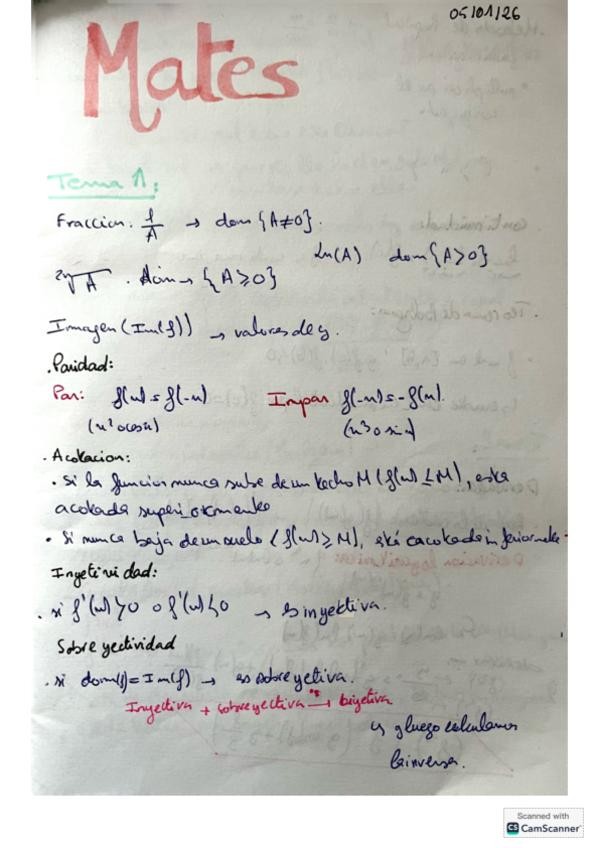 05/01/26
Mates
Tema 1:
Fraccion: 1/A → dom {A≠0}.
Ln(A) dom {A>0}
2n√A . dom → {A≥0}
Imagen (Im(f)) → valores de y.
.Paridad:
Par: f(x) = f(-x) Impar f(-x) = -f(x).
(x² o cos x) (x³ o sin x)
. Acotacion:
. Si la funcion nunca sube de un techo M (f(x) ≤ M), esta
acotada superiormente
• Si nunca baja de un suelo (f(x) ≥ M), está acotada inferiormente.
Inyetividad:
. si f'(x) > 0 o f'(x) < 0 → es inyektiva.
Sobreyectividad
. si dom(f) = Im(f) → es sobreyetiva.
Inyectiva + sobreyectiva → biyetiva
↳ y luego calculamos
la inversa.
Scanned with
CS CamScanner